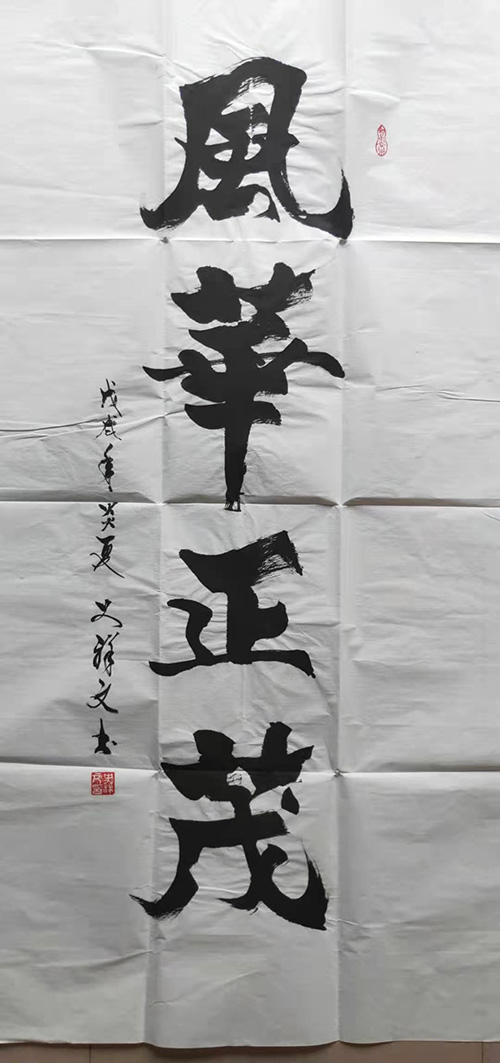 風華正茂
戊戌年炎夏 史祥文书